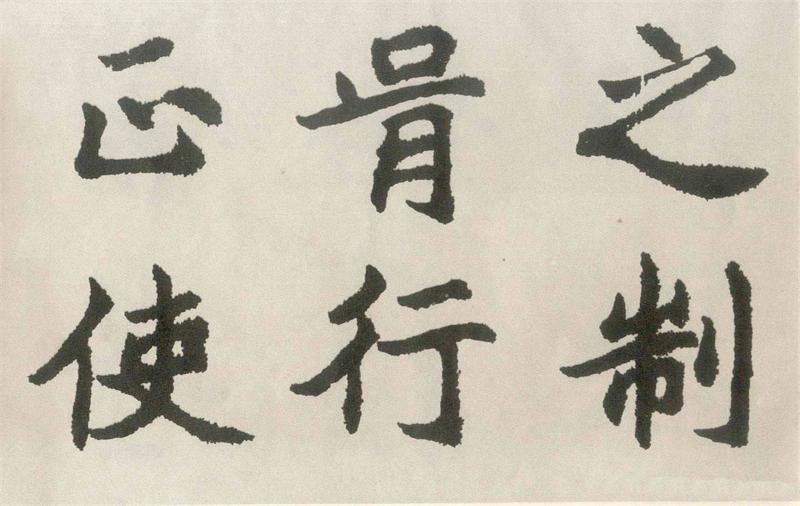 之制
胥行
正使